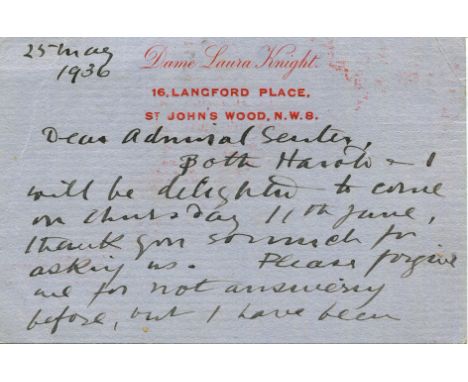 25 May
1936
Dame Laura Knight.
16, LANGFORD PLACE,
ST JOHN'S WOOD, N.W.8.
Dear Admiral
Both Harold & I
will be delighted to come
on Thursday 11th June,
thank you so much for
asking us. Please forgive
me for not answering
before, but I have been